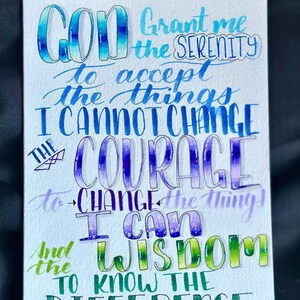 GOD Grant me
the SERENITY
to accept
the things
I CANNOT CHANGE
THE COURAGE
to CHANGE the things
I CAN
And the WISDOM
TO KNOW THE
DIFFERENCE